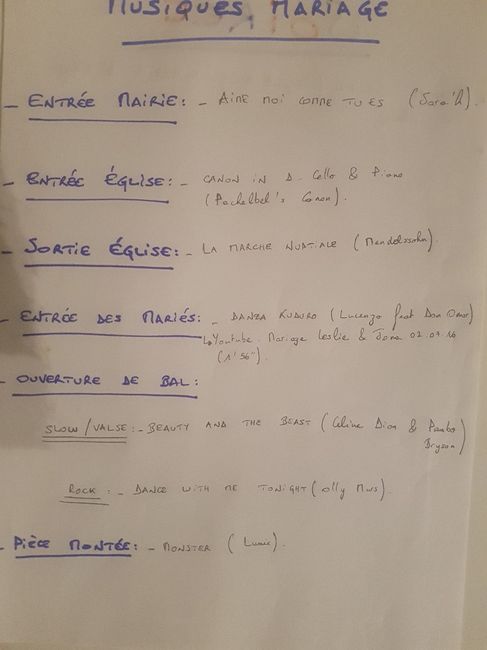 MUSIQUES MARIAGE
- ENTRÉE MAIRIE: - AIME MOI COMME TU ES (Sara'h).
- ENTRÉE ÉGLISE: - CANON IN D. Cello & Piano
(Pachelbel's Canon).
- SORTIE ÉGLISE: - LA MARCHE NUPTIALE (Mendelssohn).
- ENTRÉE DES MARIÉS: - DANZA KUDURO (Lucenzo feat Don Omar)
↳ Youtube. Mariage Leslie & Jona 02.07.16
(1'56").
- OUVERTURE DE BAL:
SLOW/VALSE: - BEAUTY AND THE BEAST (Céline Dion & Peabo
Bryson)
ROCK: - DANCE WITH ME TONIGHT (Olly Murs).
- PIÈCE MONTÉE: - MONSTER (Lumix).